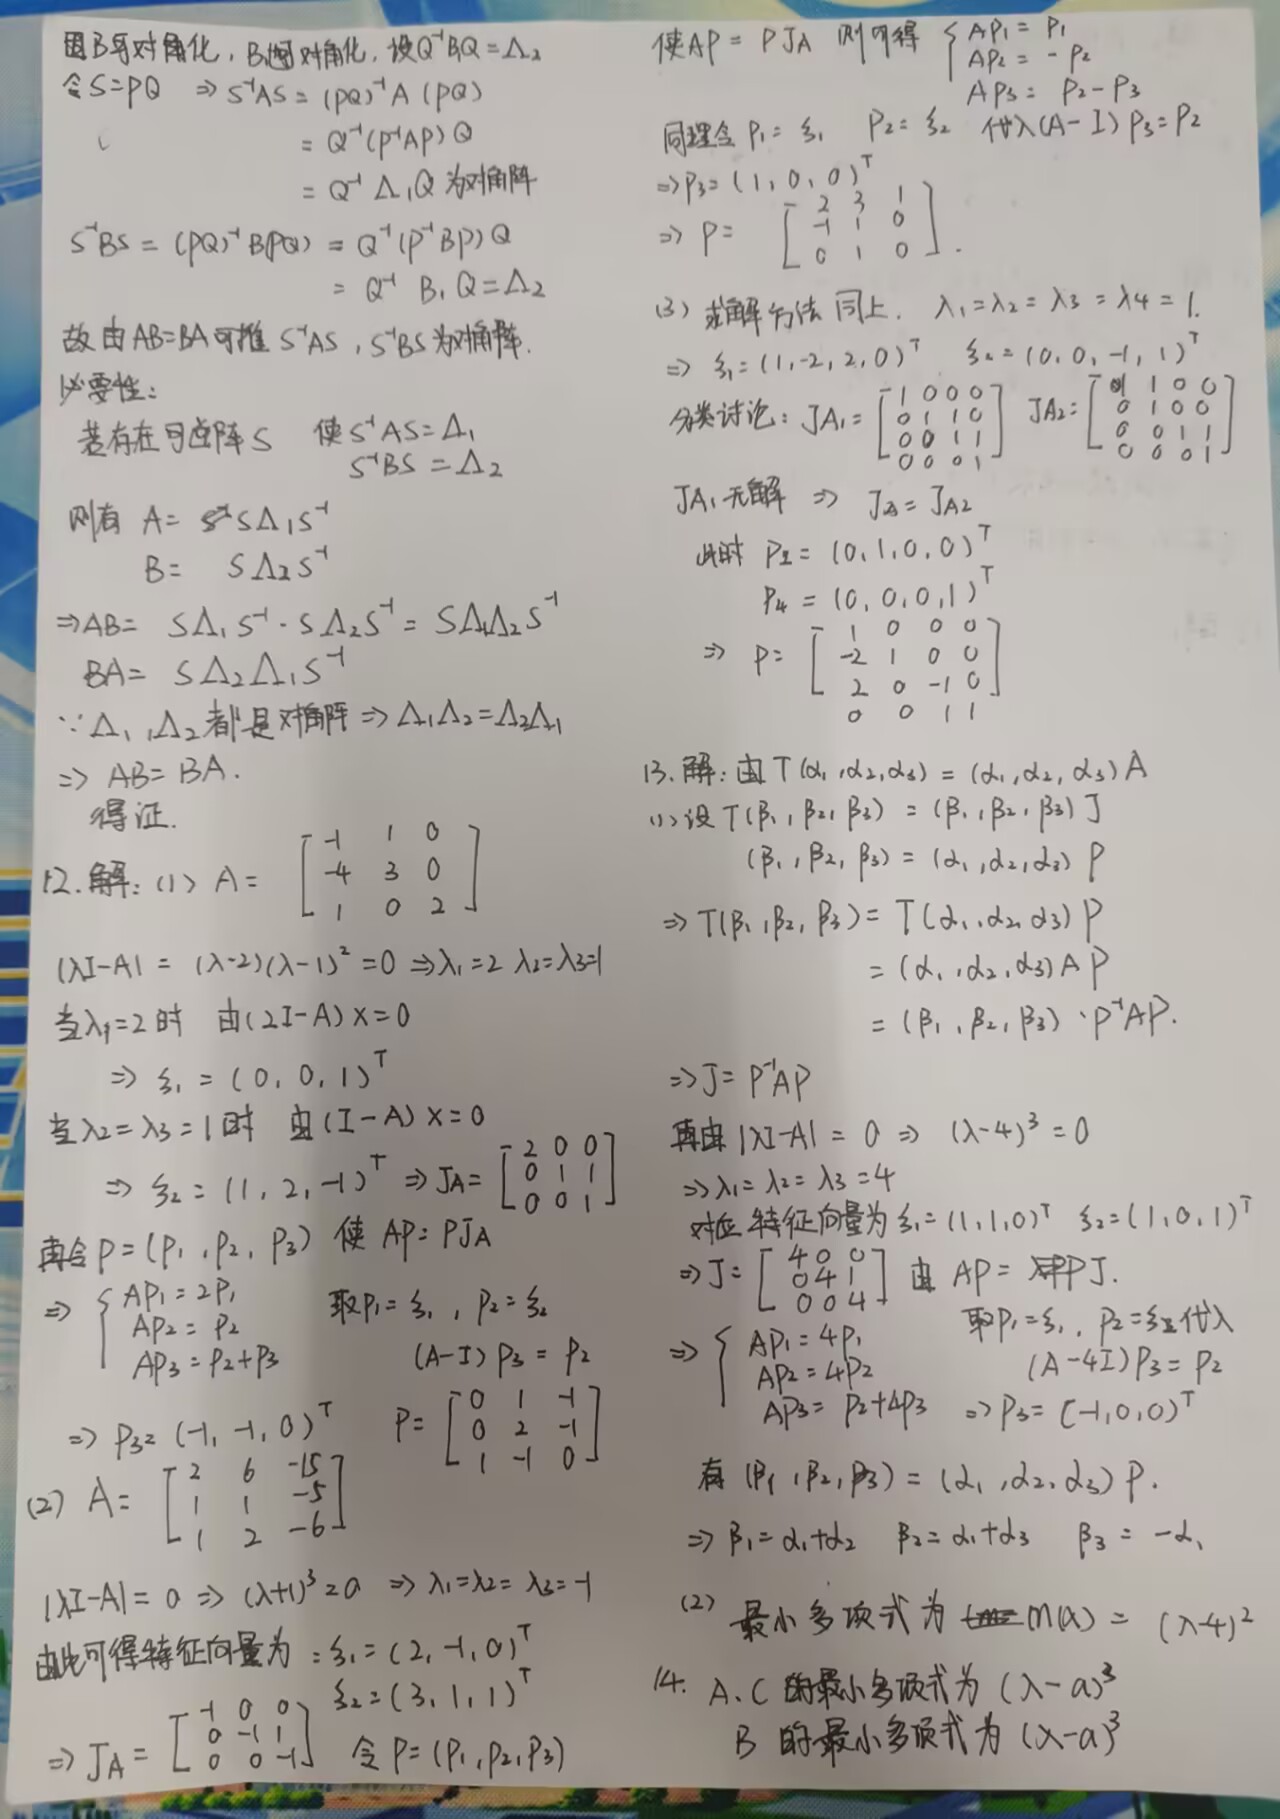 因B可对角化，B₁可对角化，设Q⁻¹B₁Q=Λ₂
令S=PQ ⇒ S⁻¹AS = (PQ)⁻¹A(PQ)
= Q⁻¹(P⁻¹AP)Q
= Q⁻¹Λ₁Q 为对角阵
S⁻¹BS = (PQ)⁻¹B(PQ) = Q⁻¹(P⁻¹BP)Q
= Q⁻¹B₁Q=Λ₂
故由AB=BA可推S⁻¹AS，S⁻¹BS为对角阵.
必要性：
若存在可逆阵S 使S⁻¹AS=Λ₁
S⁻¹BS=Λ₂
则有 A= SΛ₁S⁻¹
B= SΛ₂S⁻¹
⇒AB= SΛ₁S⁻¹·SΛ₂S⁻¹= SΛ₁Λ₂S⁻¹
BA= SΛ₂Λ₁S⁻¹
∵Λ₁,Λ₂都是对角阵⇒Λ₁Λ₂=Λ₂Λ₁
⇒ AB=BA.
得证.
12.解：(1) A= [-1 1 0
-4 3 0
1 0 2]
|λI-A| = (λ-2)(λ-1)²=0 ⇒λ₁=2 λ₂=λ₃=1
当λ₁=2时 由(2I-A)x=0
⇒ ξ₁=(0,0,1)ᵀ
当λ₂=λ₃=1时 由(I-A)x=0
⇒ ξ₂=(1,2,-1)ᵀ ⇒JA= [2 0 0
0 1 1
0 0 1]
再令P=(P₁,P₂,P₃) 使 AP=PJA
⇒ { AP₁=2P₁ 取P₁=ξ₁, P₂=ξ₂
AP₂=P₂
AP₃=P₂+P₃ (A-I)P₃=P₂
⇒ P₃=(-1,-1,0)ᵀ P= [0 1 -1
0 2 -1
1 -1 0]
(2) A= [2 6 -15
1 1 -5
1 2 -6]
|λI-A|=0 ⇒ (λ+1)³=0 ⇒ λ₁=λ₂=λ₃=-1
由此可得特征向量为：ξ₁=(2,-1,0)ᵀ
ξ₂=(3,1,1)ᵀ
⇒ JA= [-1 0 0
0 -1 1
0 0 -1] 令P=(P₁,P₂,P₃)
使AP=PJA 则可得 { AP₁=P₁
AP₂=-P₂
AP₃=P₂-P₃
同理令P₁=ξ₁ P₂=ξ₂ 代入(A-I)P₃=P₂
⇒P₃=(1,0,0)ᵀ
⇒ P= [2 3 1
-1 1 0
0 1 0].
(3) 求解方法同上. λ₁=λ₂=λ₃=λ4=1.
⇒ ξ₁=(1,-2,2,0)ᵀ ξ₂=(0,0,-1,1)ᵀ
分类讨论：JA₁= [1 0 0 0
0 1 1 0
0 0 1 1
0 0 0 1] JA₂= [1 1 0 0
0 1 0 0
0 0 1 1
0 0 0 1]
JA₁无解 ⇒ JA=JA₂
此时 P₂=(0,1,0,0)ᵀ
P₄=(0,0,0,1)ᵀ
⇒ P= [1 0 0 0
-2 1 0 0
2 0 -1 0
0 0 1 1]
13.解：由T(α₁,α₂,α₃)=(α₁,α₂,α₃)A
(1)设T(β₁,β₂,β₃)=(β₁,β₂,β₃)J
(β₁,β₂,β₃)=(α₁,α₂,α₃)P
⇒T(β₁,β₂,β₃)=T(α₁,α₂,α₃)P
=(α₁,α₂,α₃)AP
=(β₁,β₂,β₃)·P⁻¹AP.
⇒J=P⁻¹AP
再由|λI-A|=0 ⇒ (λ-4)³=0
⇒λ₁=λ₂=λ₃=4
对应特征向量为ξ₁=(1,1,0)ᵀ ξ₂=(1,0,1)ᵀ
⇒J= [4 0 0
0 4 1
0 0 4] 由 AP=PJ.
⇒ { AP₁=4P₁ 取P₁=ξ₁, P₂=ξ₂代入
AP₂=4P₂ (A-4I)P₃=P₂
AP₃=P₂+4P₃ ⇒P₃=(-1,0,0)ᵀ
有(β₁,β₂,β₃)=(α₁,α₂,α₃)P.
⇒β₁=α₁+α₂ β₂=α₁+α₃ β₃=-α₁
(2) 最小多项式为 m(λ)=(λ-4)²
14. A、C的最小多项式为(λ-a)³
B的最小多项式为(λ-a)³